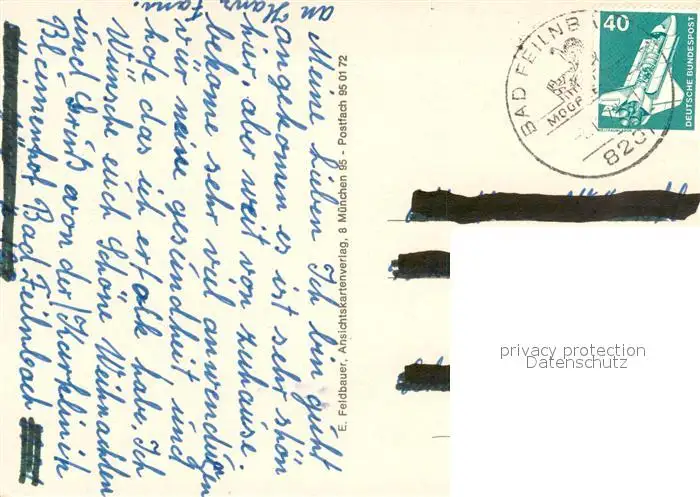 Meine Lieben Ich bin guht
angekomen es ist sehr schön
hier, aber weit von zuhause.
bekome sehr viel anwendungen
vür meine gesundheit und
hofe das ich erfolk habe. Ich
Wünsche euch Schöne Weihnachten
und Gruß von der Kurklinik
Blumenhof Bad Feilnbach
an
Fam.
E. Feldbauer, Ansichtskartenverlag, 8 München 95 - Postfach 95 01 72
BAD FEILNB
MOOR
820
40
DEUTSCHE BUNDESPOST
privacy protection
Datenschutz